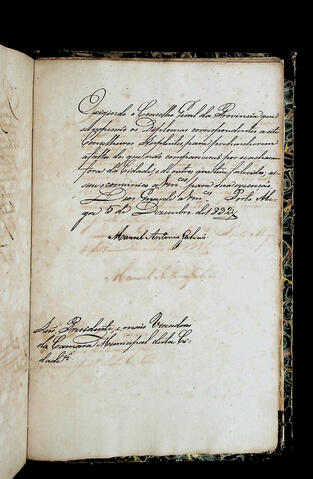 Exigindo o Conselho Geral da Provincia que
se expessão os Diplomas correspondentes a sete
Conselheiros Suplentes para prehencherem
a falta dos que não comparecem por se acharem
fora da Cidade, e de outro que tem falecido, as-
sim communico a Vm.ces para sua
Deos Guarde a Vm.ces Porto Ale-
gre 5 de Dezembro de 1832
Manoel Antonio Galvão
Snr.es Presidente, e mais Vereadores
da Camara Municipal desta Ci-
dade